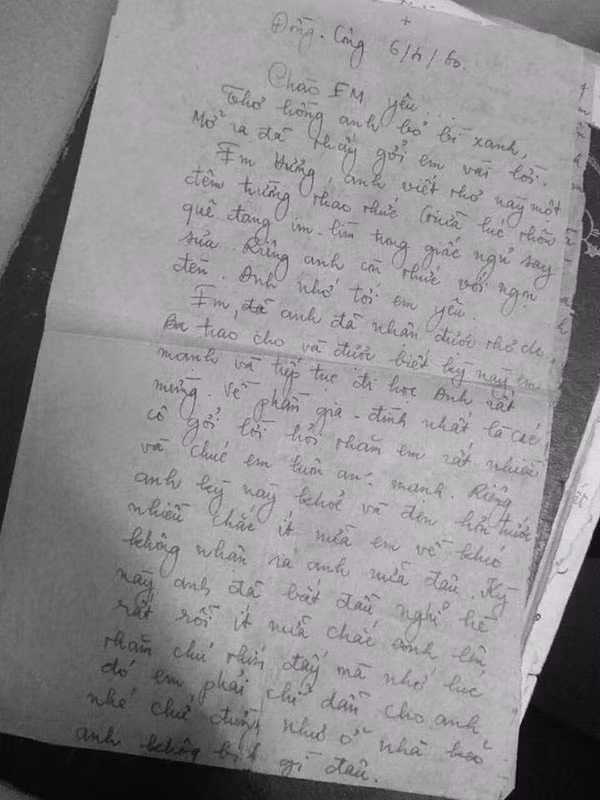 +
Đồng-Công 6/5/60.
Chào EM yêu...
Thơ hồng anh bỏ bì xanh,
Mở ra đã thấy gởi em vài lời.
Em Hường, anh viết thơ này một
đêm trường thao thức. Giữa lúc thôn
quê đang im-lìm trong giấc ngủ say
sưa. Riêng anh còn thức với ngọn
đèn. Anh nhớ tới em yêu.
Em, đã anh đã nhận được thơ do
Ba trao cho và được biết kỳ này em
mạnh và tiếp tục đi học Anh rất
mừng. Về phần gia-đình nhất là các
cô gởi lời hỏi thăm em rất nhiều
và chúc em luôn an mạnh. Riêng
anh kỳ này khoẻ và đen hơn trước
nhiều chắc ít nữa em về khó
không nhận ra anh nữa đâu. Kỳ
này anh đã bắt đầu nghỉ hè
rất rồi ít nữa chắc anh lên
thăm chú thím đấy mà nhớ lúc
đó em phải chỉ dẫn cho anh
nhé chứ đừng như ở nhà
anh không biết gì đâu.